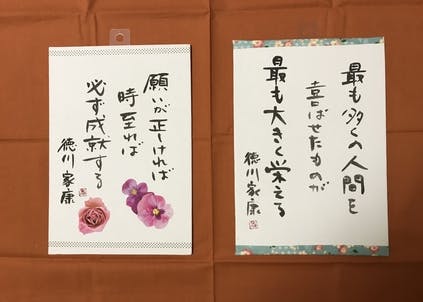 願いが正しければ
時至れば
必ず成就する
徳川家康
最も多くの人間を
喜ばせたものが
最も大きく栄える
徳川家康